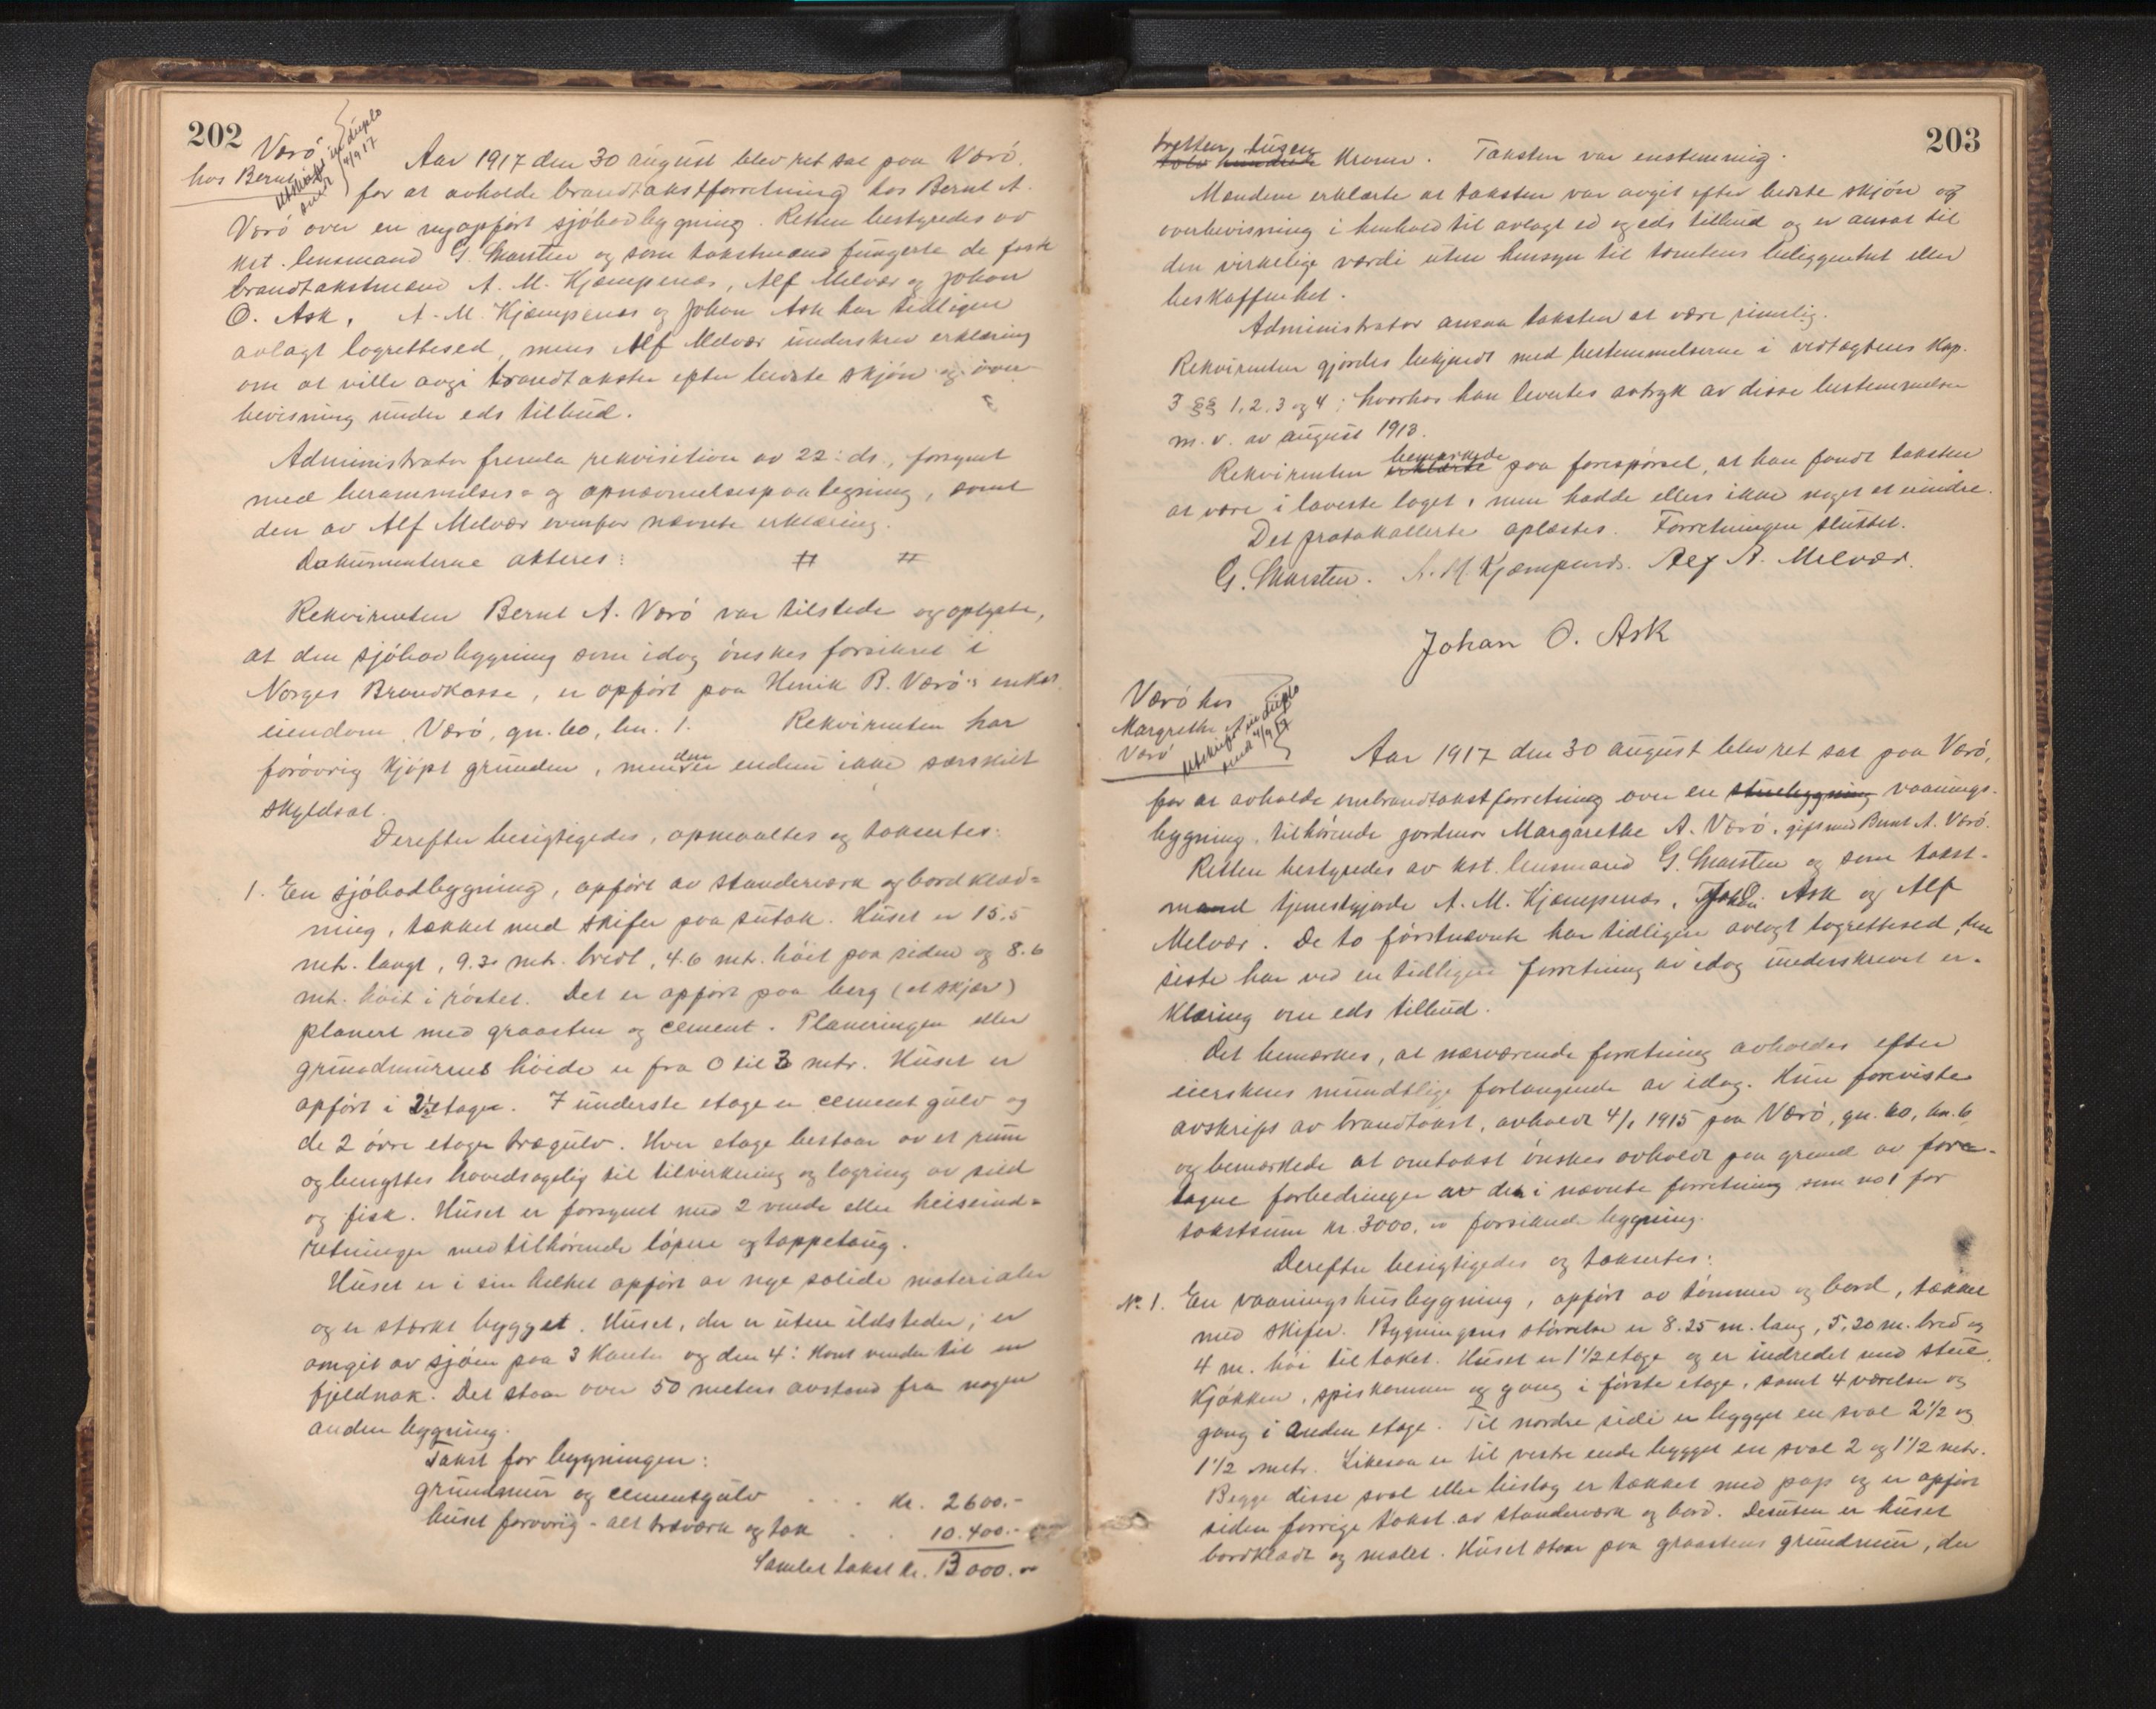 202
Værö
hos Bernt
Utskrift in duplo
sendt 4/9 17
Aar 1917 den 30 august blev ret sat paa Værö
for at avholde brandtakstforretning hos Bernt A.
Værö over en nyopfört sjöbodbygning. Retten bestyredes av
kst. lensmand G. Marsten og som takstmænd fungerte de faste
brandtakstmænd A. M. Kjempenes, Alf Melvær og Johan
O. Ask, A. M. Kjempenes og Johan Ask har tidligere
avlagt lagrettesed, mens Alf Melvær underskrev erklæring
om at ville avgi brandtakster efter bedste skjön og over-
bevisning under eds tilbud.
Administrator fremla rekvisition av 22. ds., forsynt
med berammelses- og opnævnelsespaategning, samt
den av Alf Melvær ovenfor nævnte erklæring.
Dokumenterne akteres: # #
Rekvirenten Bernt A. Værö var tilstede og oplyste,
at den sjöbodbygning som idag önskes forsikret i
Norges Brandkasse, er opfört paa Henrik B. Værö's enkes
eiendom Værö, gn. 60, bn. 1. Rekvirenten har
forövrig kjöpt grunden, men den er endnu ikke særskilt
skyldsat.
Derefter besigtigedes, opmaaltes og takseertes:
1. En sjöbodbygning, opfört av stenderverk og bordklæd-
ning, tækket med skifer paa sutak. Huset er 15.5
mtr. langt, 9.30 mtr. bredt, 4.6 mtr. höit paa siden og 8.6
mtr. höit i röstet. Det er opfört paa berg (et skjær)
planert med graasten og cement. Planeringen eller
grundmurens höide er fra 0 til 3 mtr. Huset er
opfört i 2½ etager. I underste etage er cementgulv og
de 2 övre etager trægulv. Hver etage bestaar av et rum
og benyttes hovedsagelig til tilvirkning og lagring av sild
og fisk. Huset er forsynet med 2 vinde eller heiseind-
retninger med tilhörende löpere og tappetaug.
Huset er i sin helhet opfört av nye solide materialer
og er sterkt bygget. Huset, der er uten ildsteder, er
omgit av sjöen paa 3 kanter og den 4. kant vender til en
fjeldnak. Det staar over 50 meters avstand fra nogen
anden bygning.
Takst for bygningen:
grundmur og cementgulv . . . kr. 2600.-
huset forövrig - alt træverk og tak . . 10.400.-
Samlet takst kr. 13000.-
203
tretten tusen
tolv hundrede kroner. Taksten var enstemmig.
Mændene erklærte at taksten var avgit efter bedste skjön og
overbevisning i henhold til avlagt ed og eds tilbud og er ansat til
den virkelige værdi uten hensyn til tomtens beliggenhet eller
beskaffenhet.
Administrator ansaa taksten at være rimelig.
Rekvirenten gjordes bekjendt med bestemmelserne i vedtægtens Kap.
3 §§ 1, 2, 3 og 4; hvorhos han levertes avtryk av disse bestemmelser
m. v. av august 1913.
Rekvirenten erklærte bemerkede paa forespörsel, at han fandt taksten
at være i laveste laget, men hadde ellers ikke noget at erindre.
Det protokollerte oplæstes. Forretningen sluttet.
G. Marsten. A. M Kjempenes. Alf A. Melvær.
Johan O. Ask
Værö hos
Margrethe A
Værö
Utskrift in duplo
sendt 4/9 17
Aar 1917 den 30 august blev ret sat paa Værö,
for at avholde ombrandtakstforretning over en stuebygning vaanings-
bygning, tilhörende jordmor Margarethe A. Værö, gift med Bernt A. Værö.
Retten bestyredes av kst. lensmand G. Marsten og som takst-
mænd tjenestgjorde A. M. Kjempenes, Joh. O. Ask og Alf
Melvær. De to förstnævnte har tidligere avlagt lagrettesed, den
siste har ved en tidligere forretning av idag underskrevet er-
klæring om eds tilbud.
Det bemerkes, at nærværende forretning avholdes efter
eierskens mundtlige forlangende av idag. Hun foreviste
avskrift av brandtakst, avholdt 4/1 1915 paa Værö, gn. 60, bn. 6
og bemerkede at omtakst önskes avholdt paa grund av fore-
tagne forbedringer av den i nævnte forretning som no 1 for
takstsum kr. 3000.00 forsikrede bygning.
Derefter besigtigedes og taksertes:
No 1. En vaaningshusbygning, opfört av tömmer og bord, tækket
med skifer. Bygningens störrelse er 8.25 m. lang, 5.20 m. bred og
4 m. höi til taket. Huset er 1½ etage og er indredet med stue,
kjökken, spiskammer og gang i förste etage, samt 4 værelser og
gang i anden etage. Til nordre side er bygget en sval 2½ og
1½ metr. Likesaa er til vestre ende bygget en sval 2 og 1½ metr.
Begge disse sval eller bislag er tækket med pap og er opfört
siden forrige takst av stenderverk og bord. Desuten er huset
bordklædt og malet. Huset staar paa graastens grundmur, der